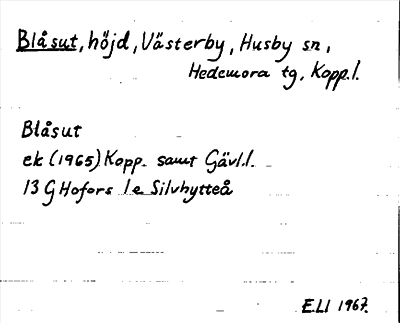 Blåsut, höjd, Västerby, Husby sn,
Hedemora tg, Kopp.l.
Blåsut
ek (1965) Kopp. samt Gävl.l.
13 G Hofors 1e Silvhytteå
E.LI 1967.